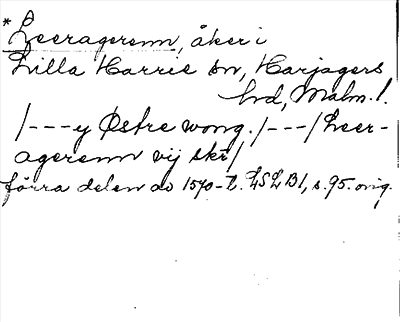 * Leeragerenn, åker i
Lilla Harrie sn, Harjagers
hd, Malm. l.
/---y Østre wong./---/Leer-
agerenn vij skr/
förra delen av 1570-t. LSLB1, s. 95. orig.